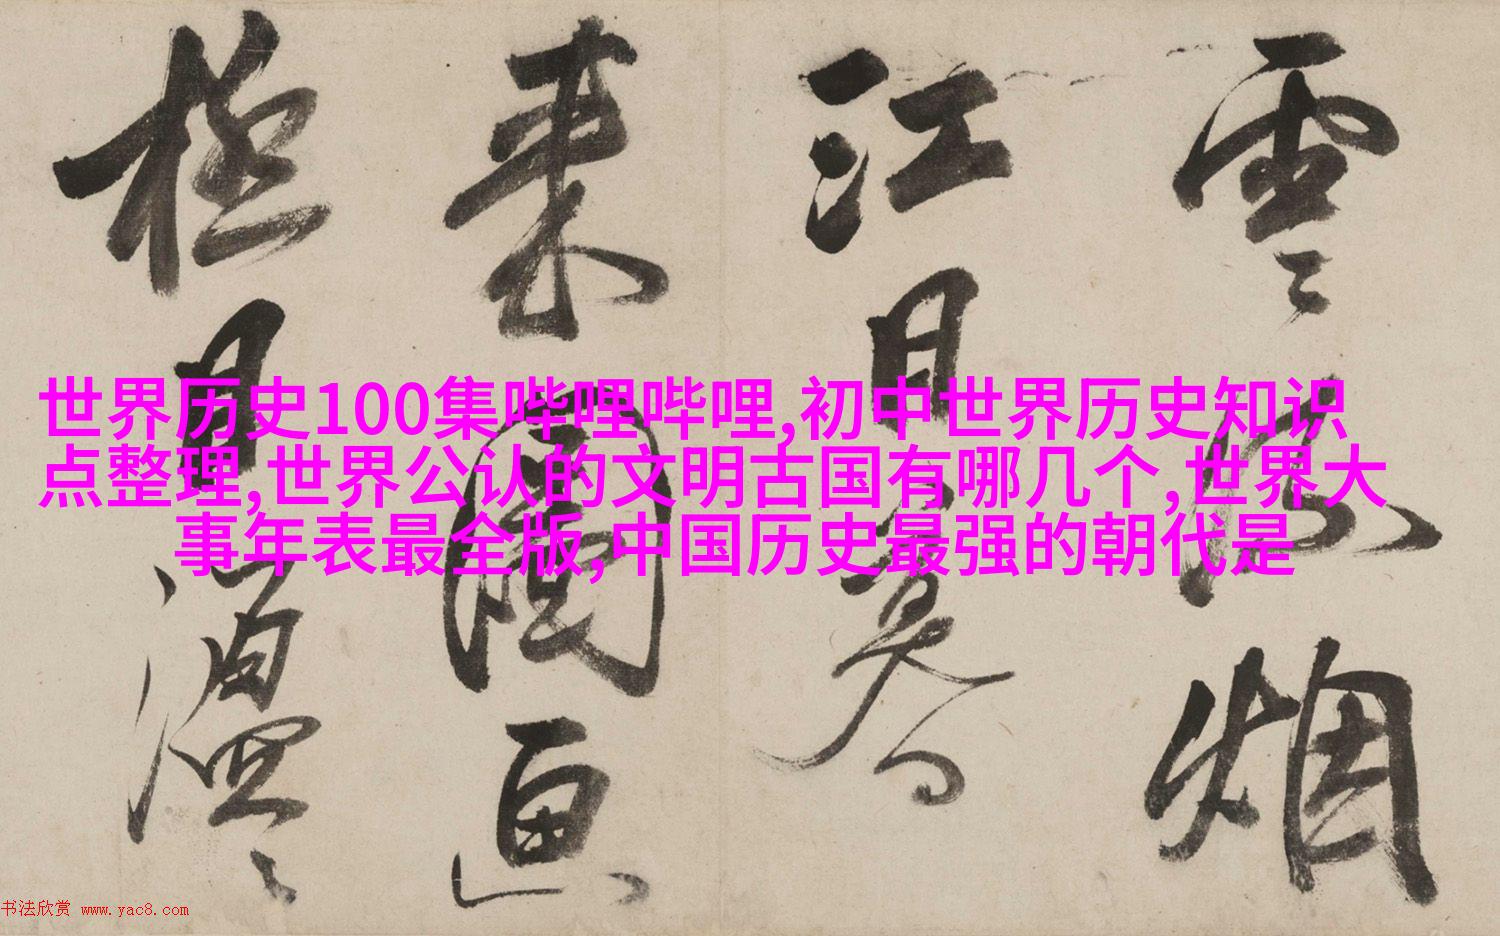 雲〻烟
江日
来圖画
極目
世界历史100集哔哩哔哩,初中世界历史知识
点整理,世界公认的文明古国有哪几个,世界大
事年表最全版,中国历史最强的朝代是
书法欣赏 www.yac8.com